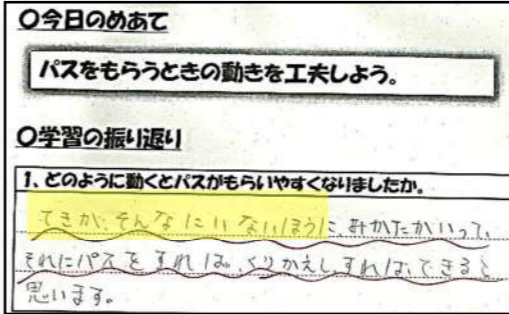 〇今日のめあて
パスをもらうときの動きを工夫しよう。
〇学習の振り返り
1、どのように動くとパスがもらいやすくなりましたか。
てきが、そんなにいないほうに、みかたがいって、
それにパスをすれば、くりかえしすれば、できると
思います。